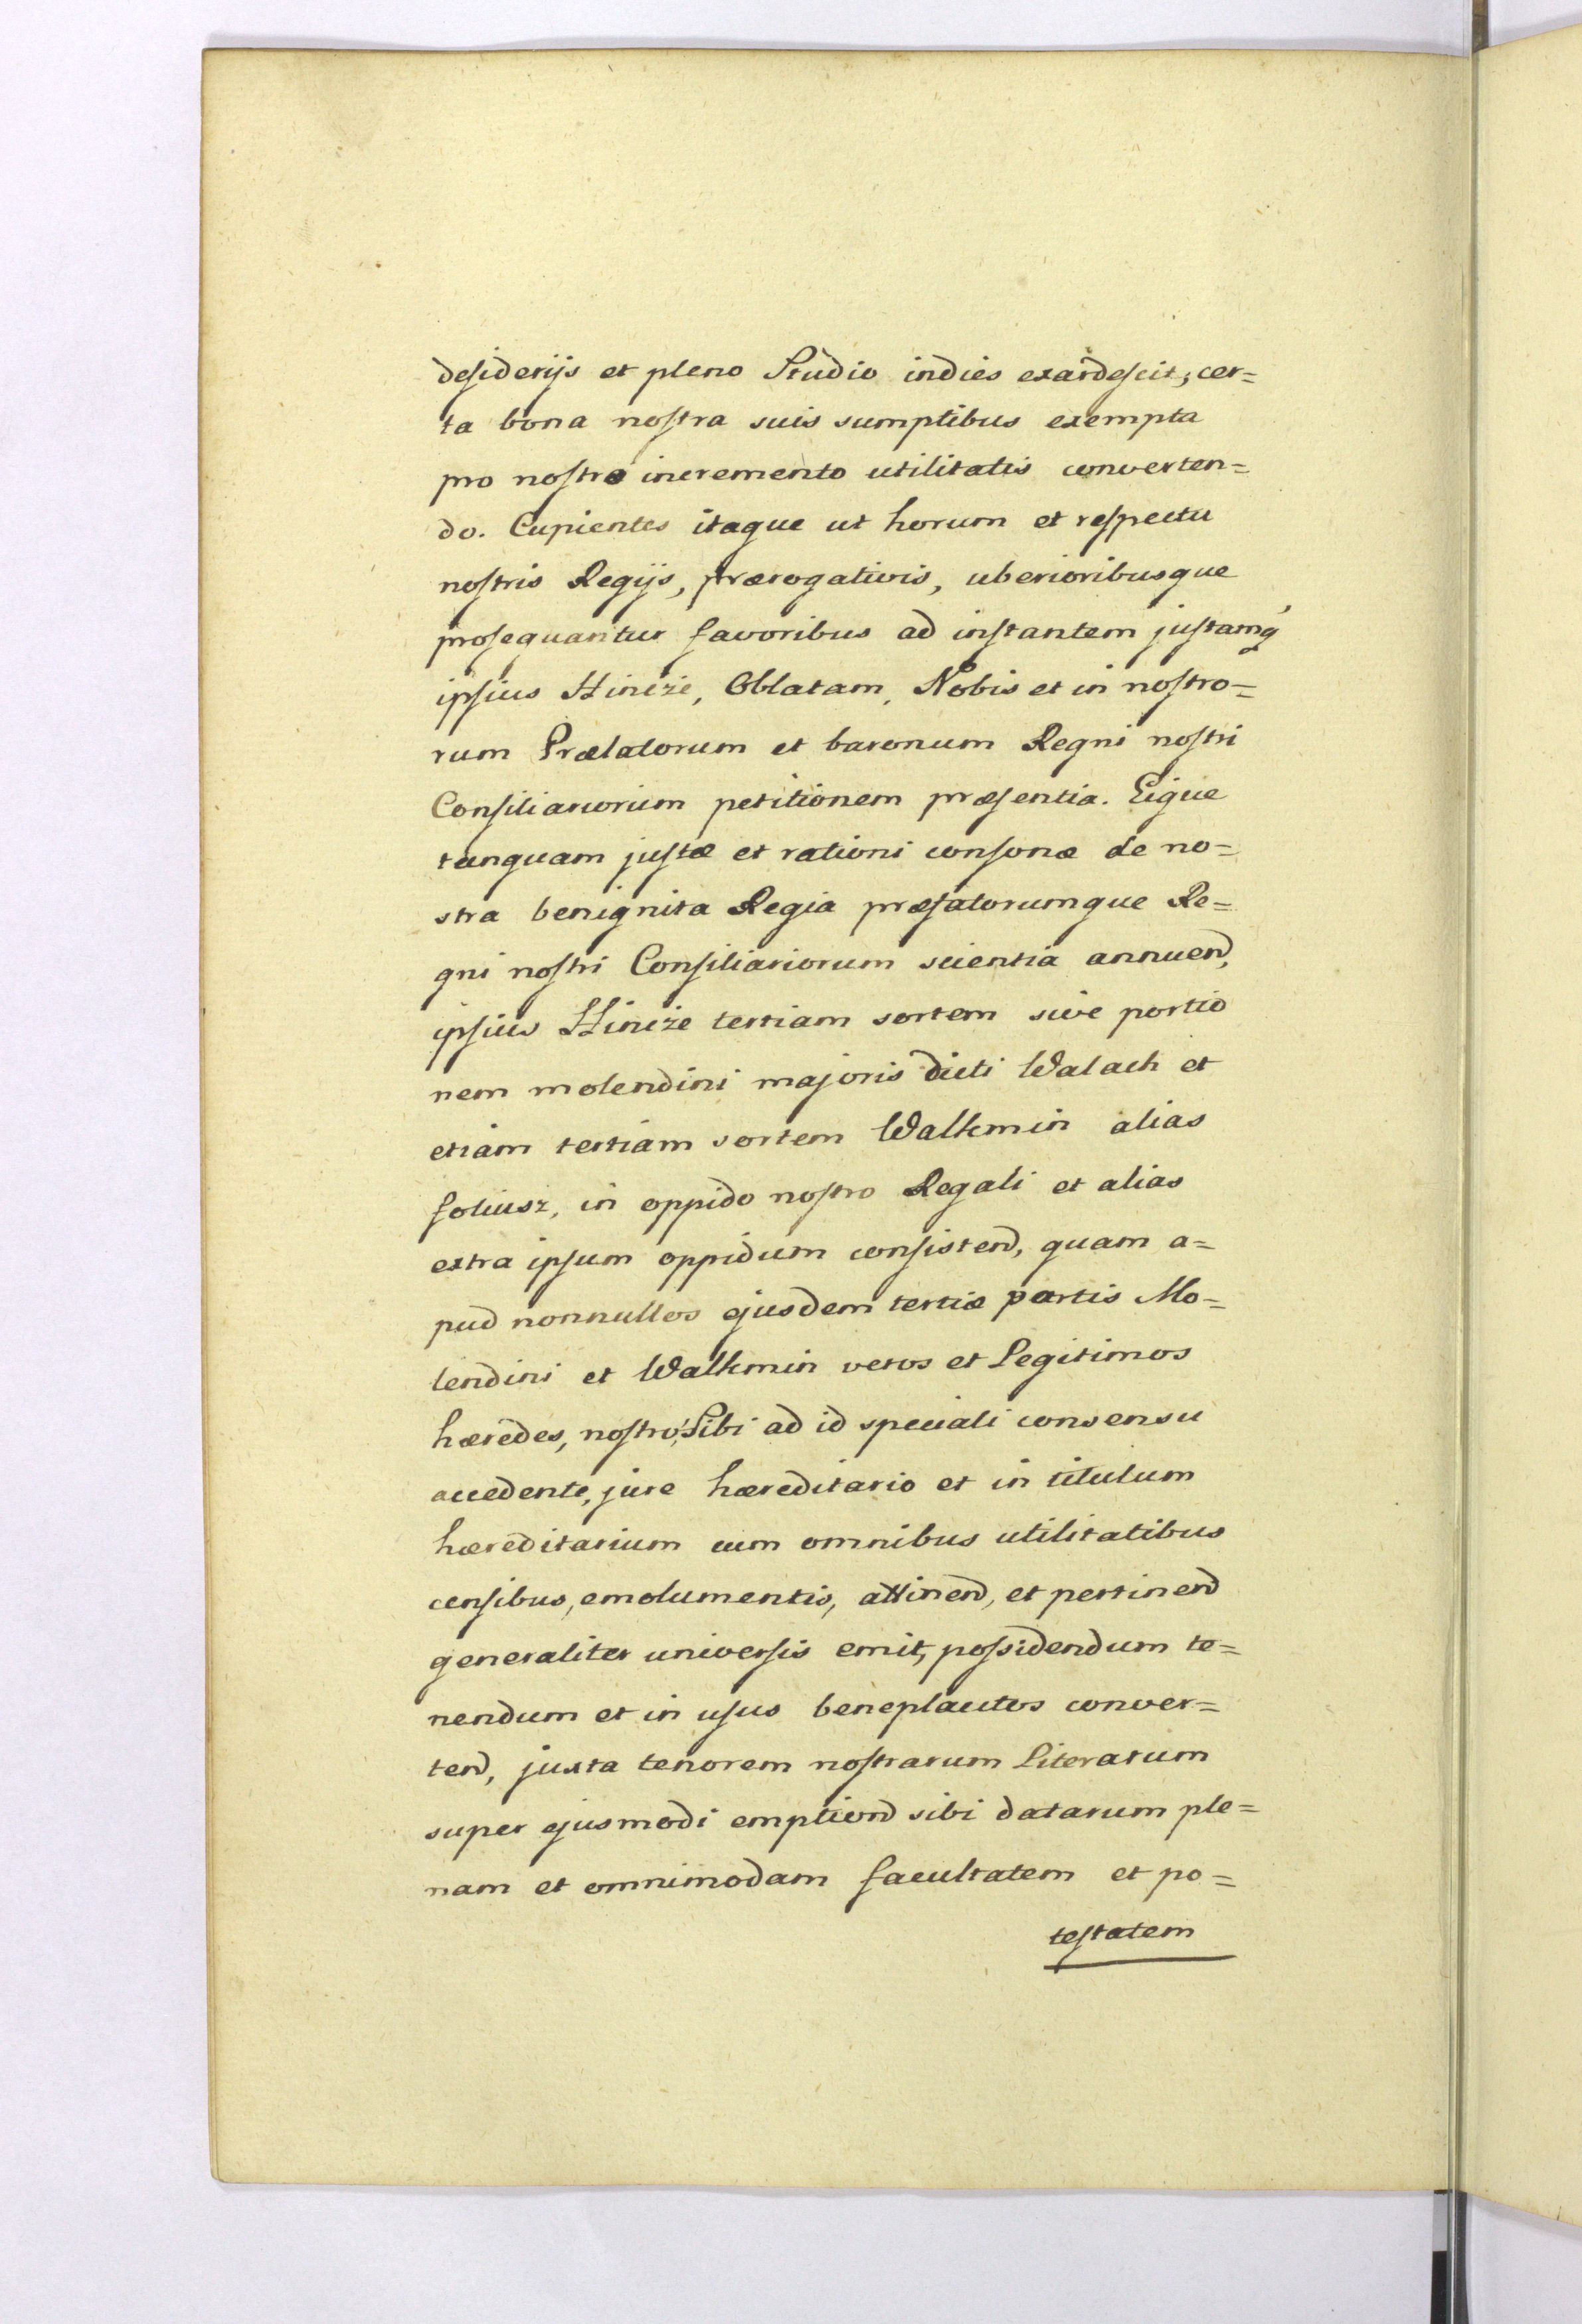 desiderijs et pleno Studio indies exardescit, cer=
ta bona nostra suis sumptibus exempta
pro nostro incremento utilitatis converten=
do. Cupientes itaque ut horum et respectu
nostris Regijs, prærogativis, uberioribusque
prosequantur favoribus ad instantem justamq́
ipsius Hincze, Oblatam, Nobis et in nostro=
rum Prælatorum et baronum Regni nostri
Consiliariorum petitionem præsentia. Eique
tanquam justæ et rationi consonæ de no=
stra benignita Regia præfatorumque Re=
gni nostri Consiliariorum scientia annuend,
ipsius Hincze tertiam sortem sive portio
nem molendini majoris dicti Walach et
etiam tertiam sortem Walkmin alias
foliusz, in oppido nostro Regali et alias
extra ipsum oppidum consistend, quam a=
pud nonnullos ejusdem tertiæ partis Mo=
lendini et Walkmin veros et Legitimos
hæredes, nostro, Sibi ad id speciali consensu
accedente, jure hæreditario et in titulum
hæreditarium cum omnibus utilitatibus
censibus, emolumentis, attinend, et pertinend
generaliter universis emit, possidendum te=
nendum et in usus beneplacitos conver=
tend, juxta tenorem nostrarum Literarum
super ejusmodi emptiond sibi datarum ple=
nam et omnimodam facultatem et po=
testatem